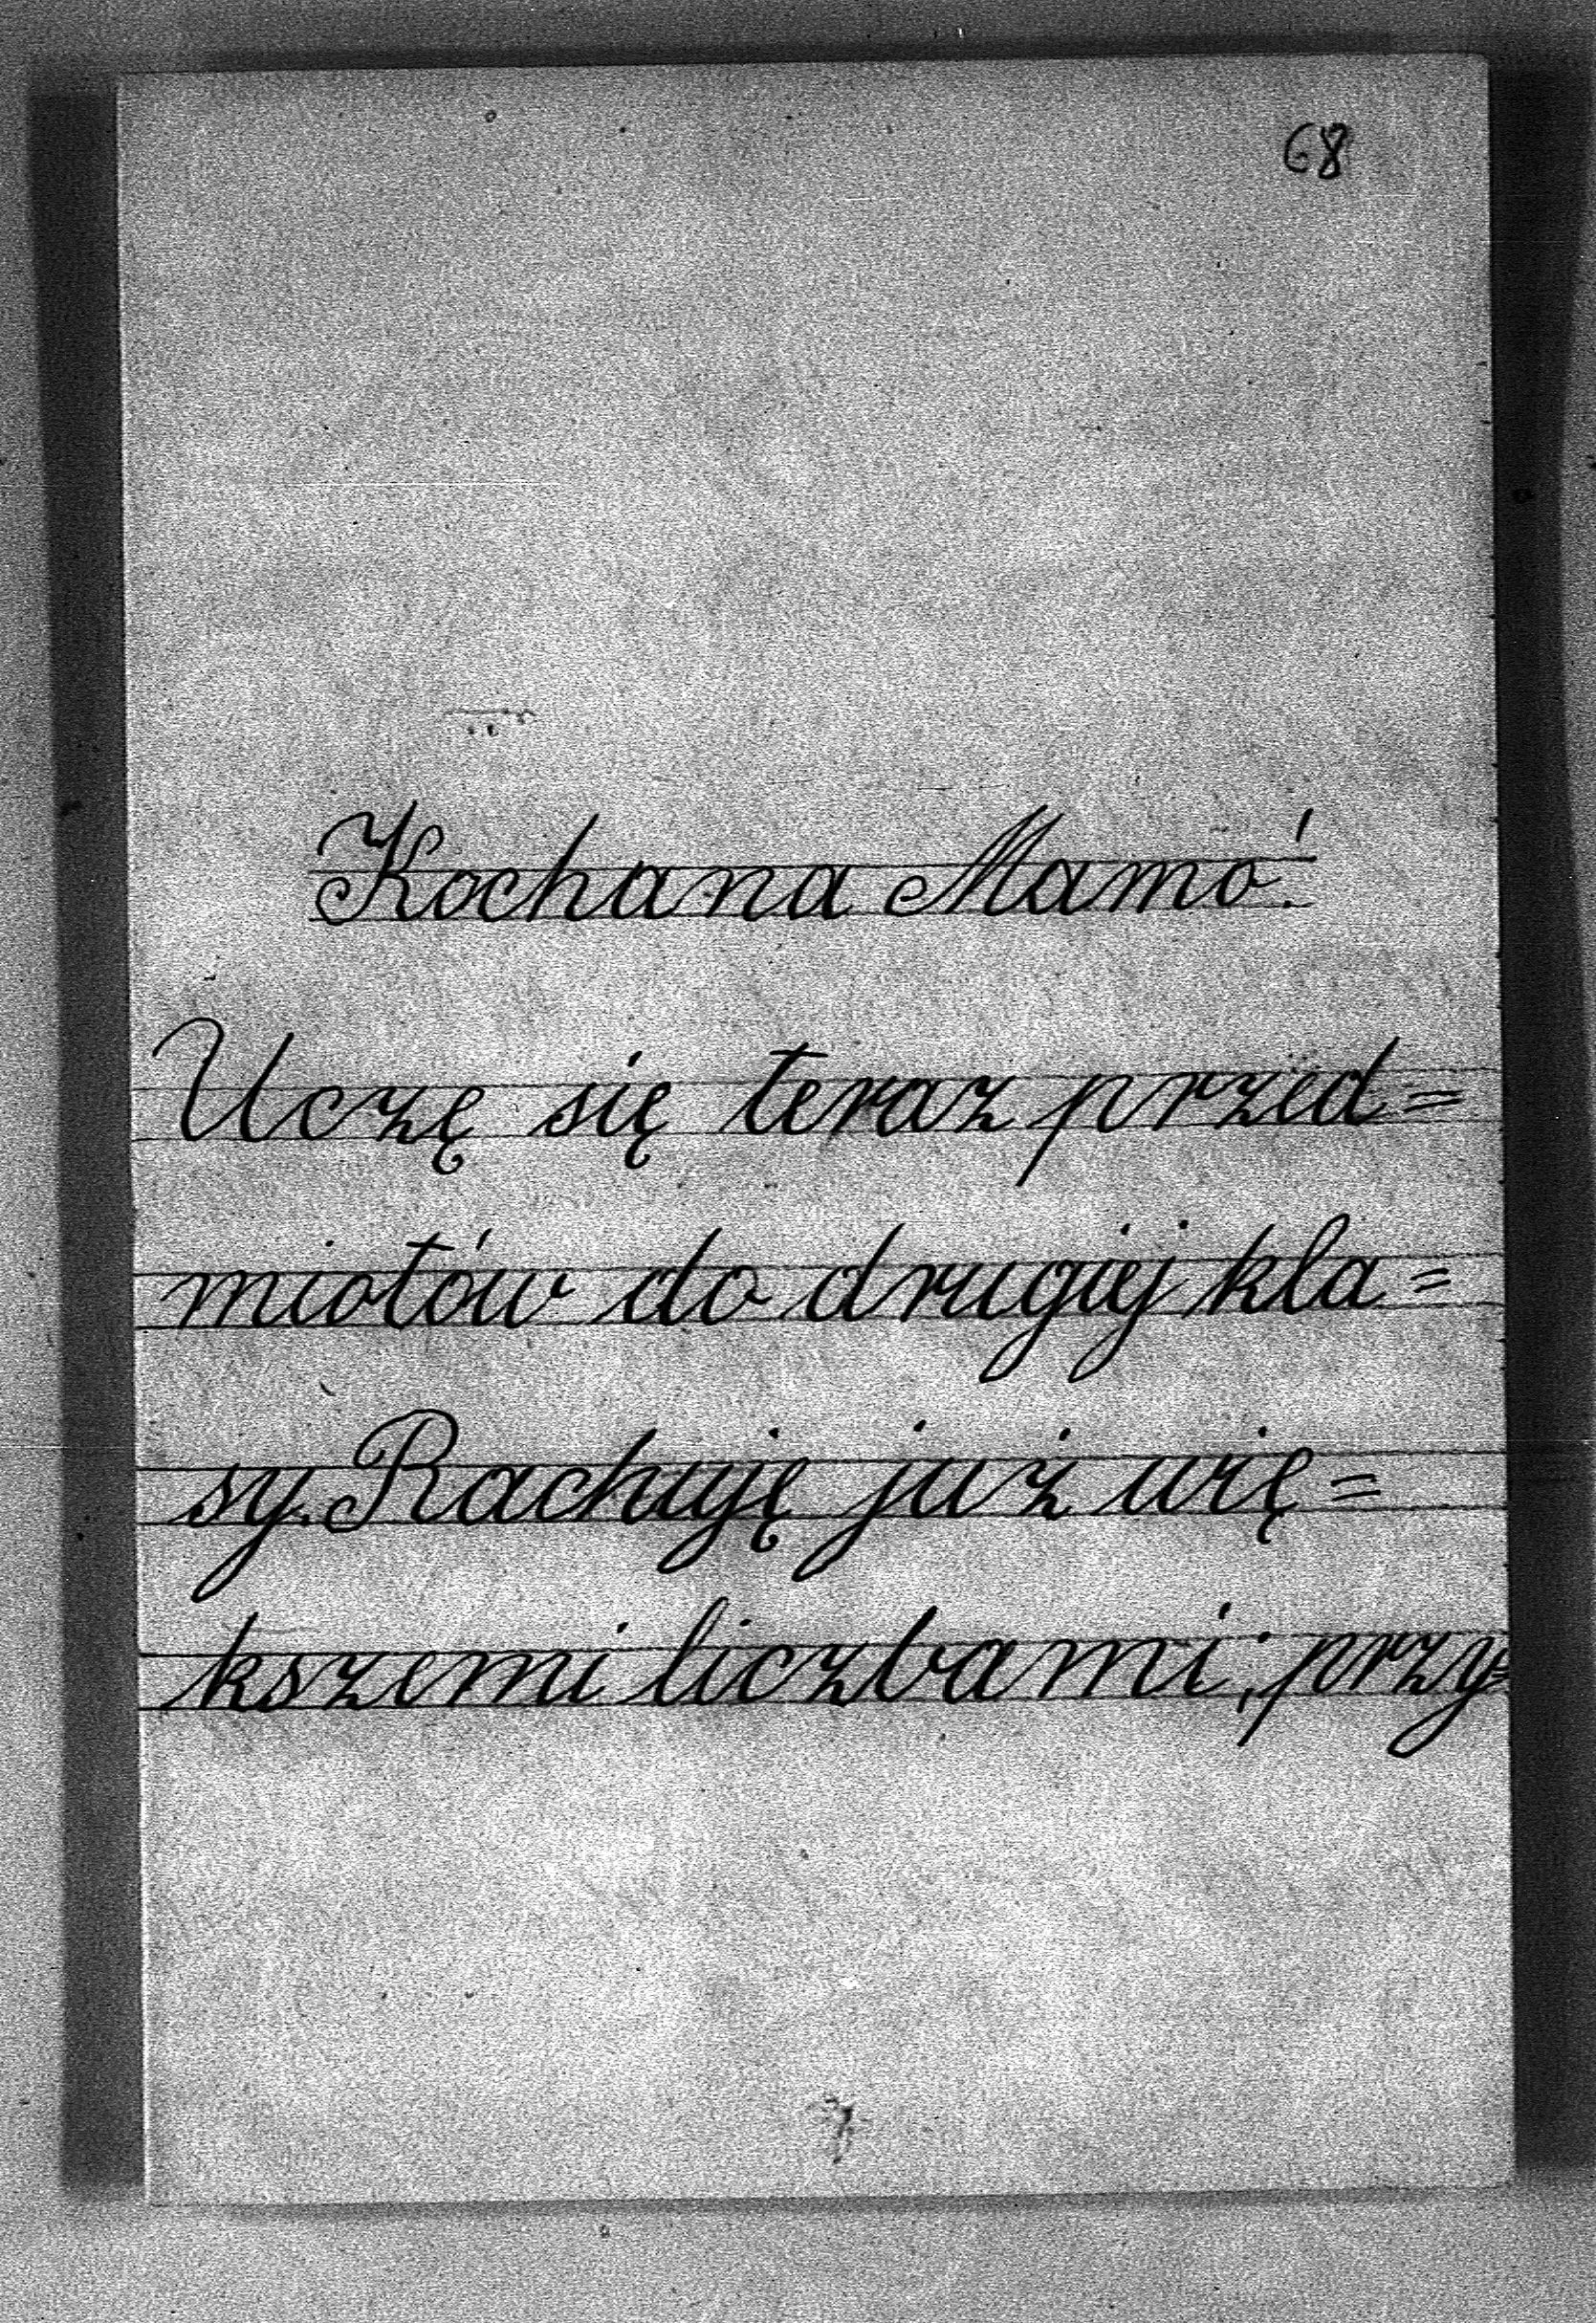 68
Kochana Mamo!
Uczę się teraz przed=
miotów do drugiej kla=
sy. Rachuję już wię=
kszemi liczbami; przy=
7